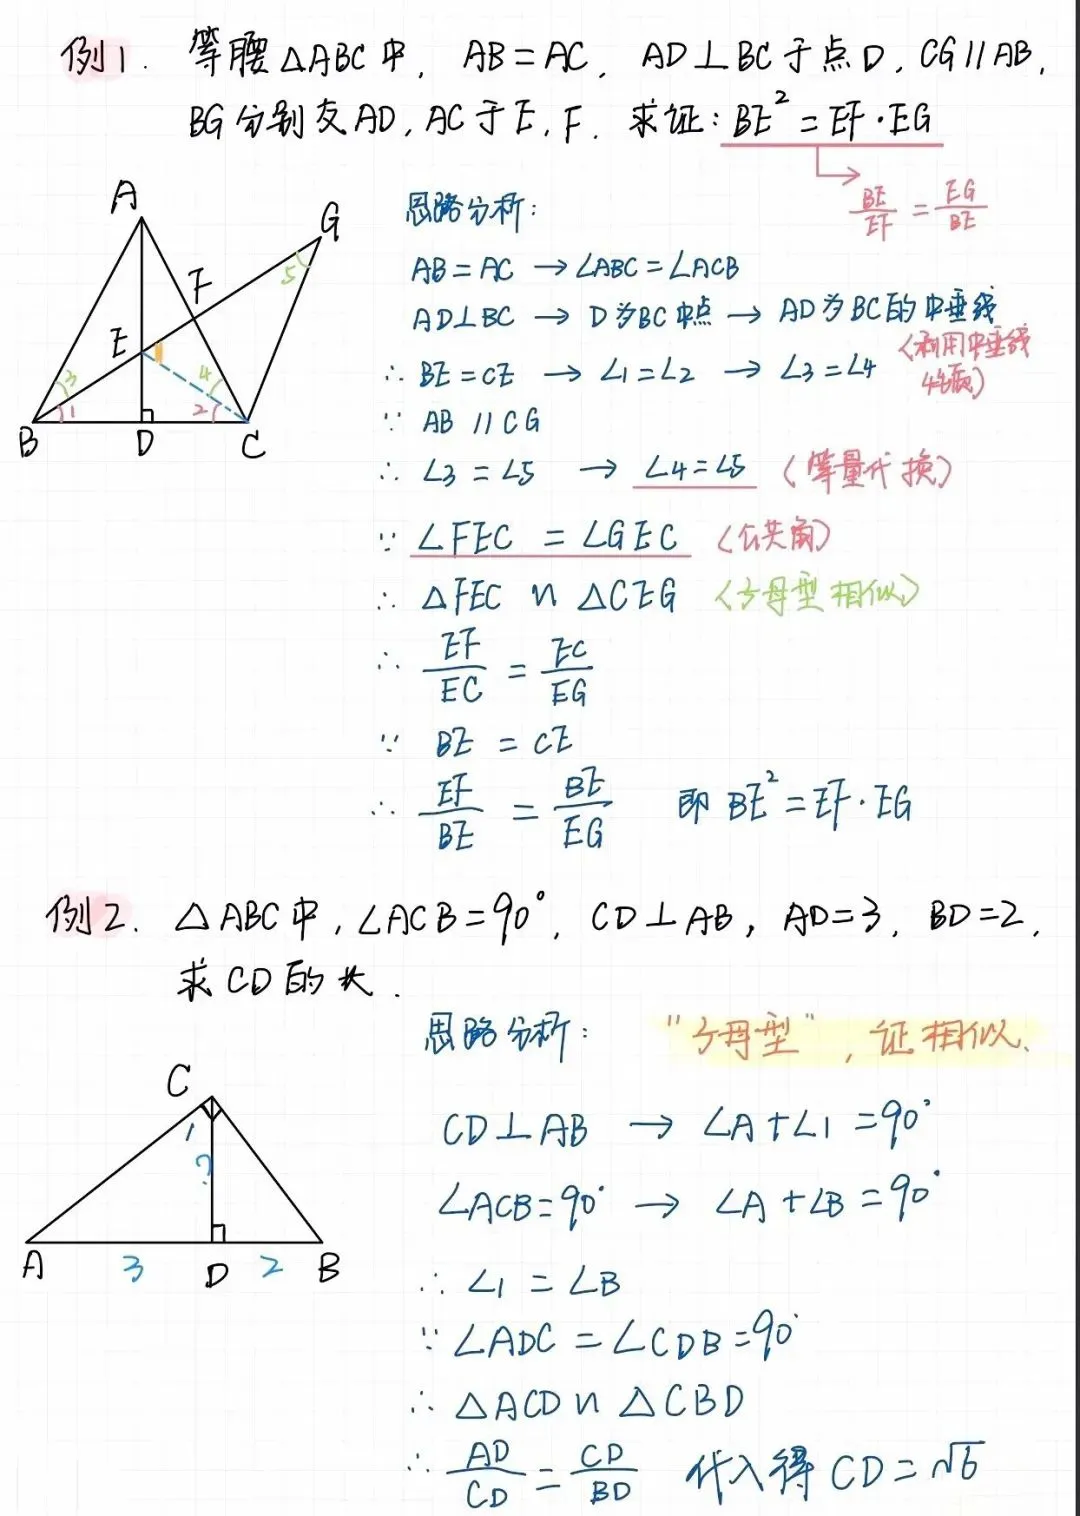 例1. 等腰△ABC中, AB=AC, AD⊥BC于点D, CG∥AB,
BG分别交AD, AC于E, F. 求证: BE²=EF·EG
BE/EF = EG/BE
A
G
F
5
E
3
4
1
2
B
D
C
思路分析:
AB=AC → ∠ABC=∠ACB
AD⊥BC → D为BC中点 → AD为BC的中垂线
∴ BE=CE → ∠1=∠2 → ∠3=∠4
(利用中垂线
性质)
∵ AB∥CG
∴ ∠3=∠5 → ∠4=∠5 (等量代换)
∵ ∠FEC = ∠GEC (公共角)
∴ △FEC ∽ △CEG (子母型相似)
∴ EF/EC = EC/EG
∵ BE = CE
∴ EF/BE = BE/EG 即 BE²=EF·EG
例2. △ABC中, ∠ACB=90°, CD⊥AB, AD=3, BD=2,
求CD的长.
C
1
?
A
3
D
2
B
思路分析: "子母型", 证相似.
CD⊥AB → ∠A+∠1=90°
∠ACB=90° → ∠A+∠B=90°
∴ ∠1=∠B
∵ ∠ADC=∠CDB=90°
∴ △ACD∽△CBD
∴ AD/CD = CD/BD 代入得 CD=√6